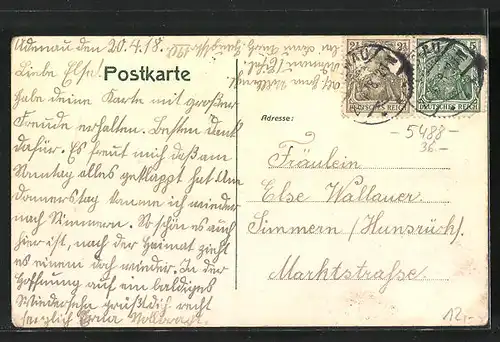 Adenau den 20.4.18.
Liebe Else!
Habe deine Karte mit großer
Freude erhalten. Besten Dank
dafür. Es freut mich daß am
Sonntag alles geklappt hat. Am
Donnerstag komme ich wieder
nach Simmern. So schön es auch
hier ist, nach der Heimat zieht
es einem doch wieder. In der
Hoffnung auf ein baldiges
Wiedersehn grüßt dich recht
herzlich Erna
Postkarte
2½ 2½
DEUTSCHES REICH
5
DEUTSCHES REICH
Adresse:
5488-
36.-
Fräulein
Else Wallauer
Simmern (Hunsrück)
Marktstrasse
12,-